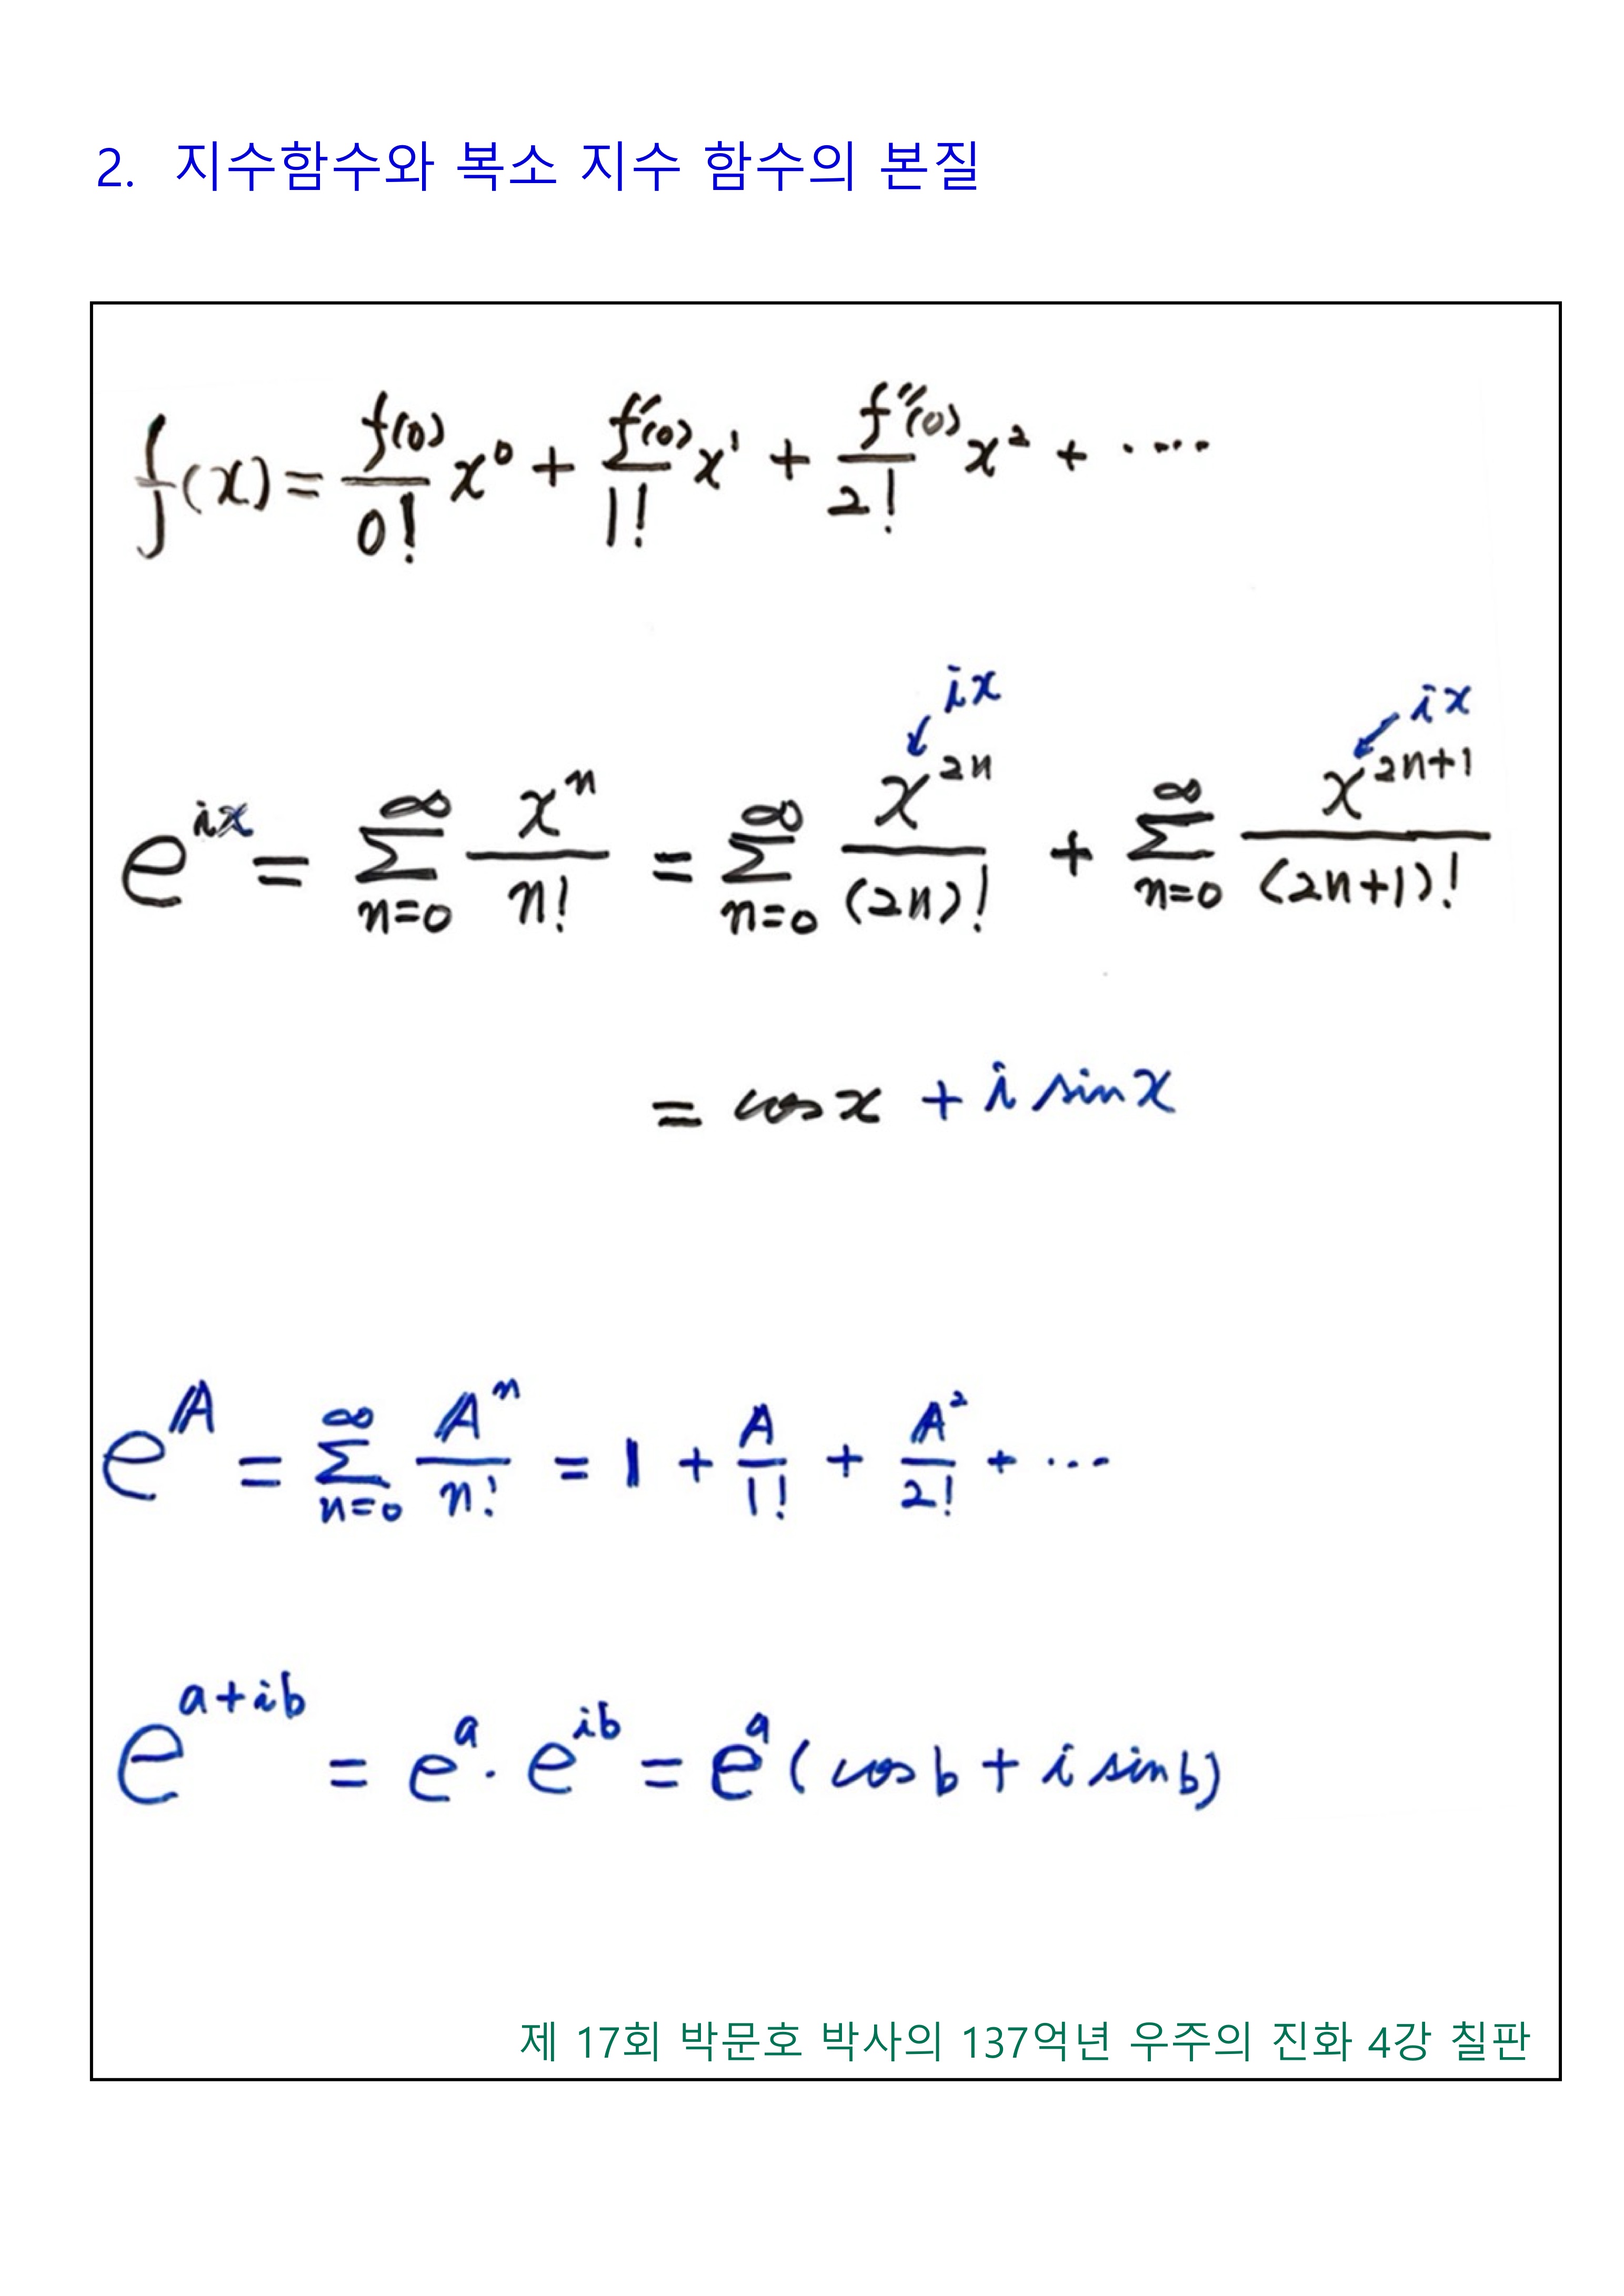 2. 지수함수와 복소 지수 함수의 본질
f(x) = f(0)/0! x⁰ + f′(0)/1! x¹ + f″(0)/2! x² + ····
ix ix
e^{ix} = ∑_{n=0}^{∞} x^n/n! = ∑_{n=0}^{∞} x^{2n}/(2n)! + ∑_{n=0}^{∞} x^{2n+1}/(2n+1)!
= cos x + i sin x
e^A = ∑_{n=0}^{∞} A^n/n! = 1 + A/1! + A²/2! + ···
e^{a+ib} = e^a · e^{ib} = e^a (cos b + i sin b)
제 17회 박문호 박사의 137억년 우주의 진화 4강 칠판